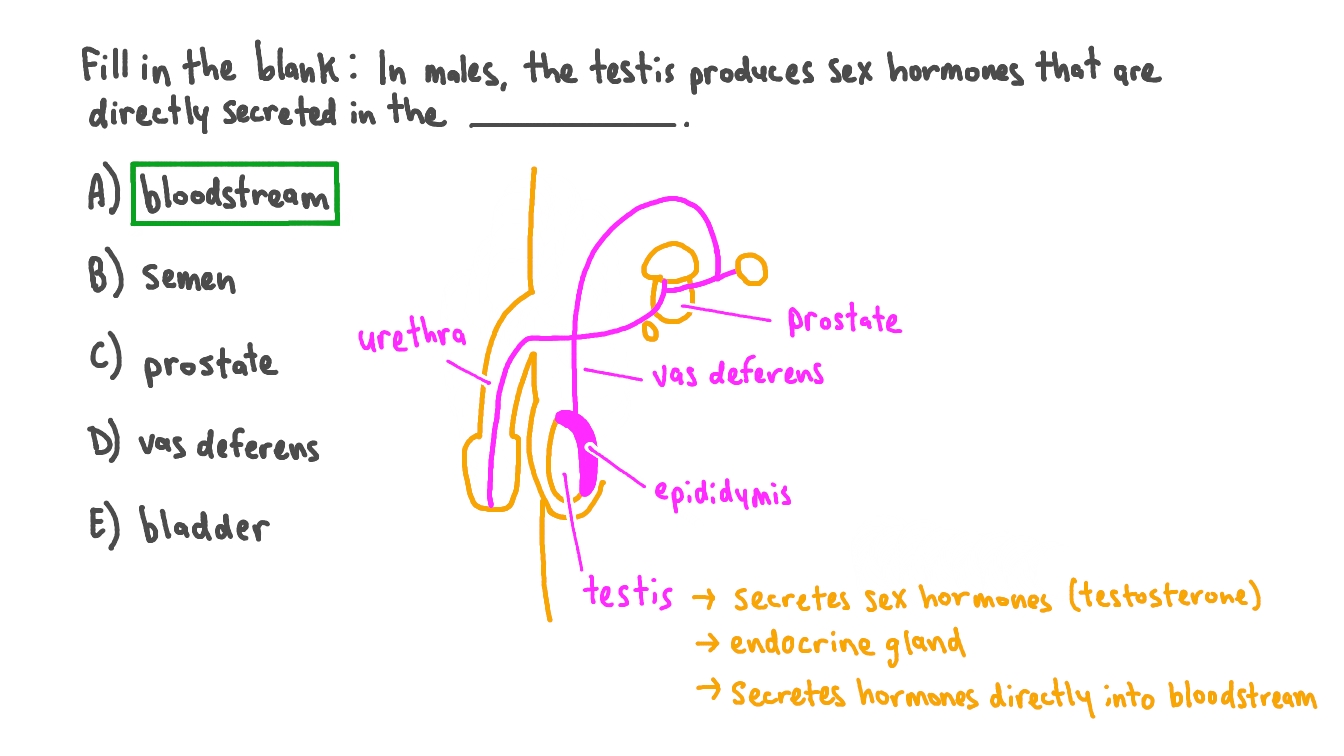 Fill in the blank: In males, the testis produces sex hormones that are
directly secreted in the ____________.
A) bloodstream
B) semen
C) prostate
D) vas deferens
E) bladder
urethra
prostate
vas deferens
epididymis
testis → secretes sex hormones (testosterone)
→ endocrine gland
→ secretes hormones directly into bloodstream